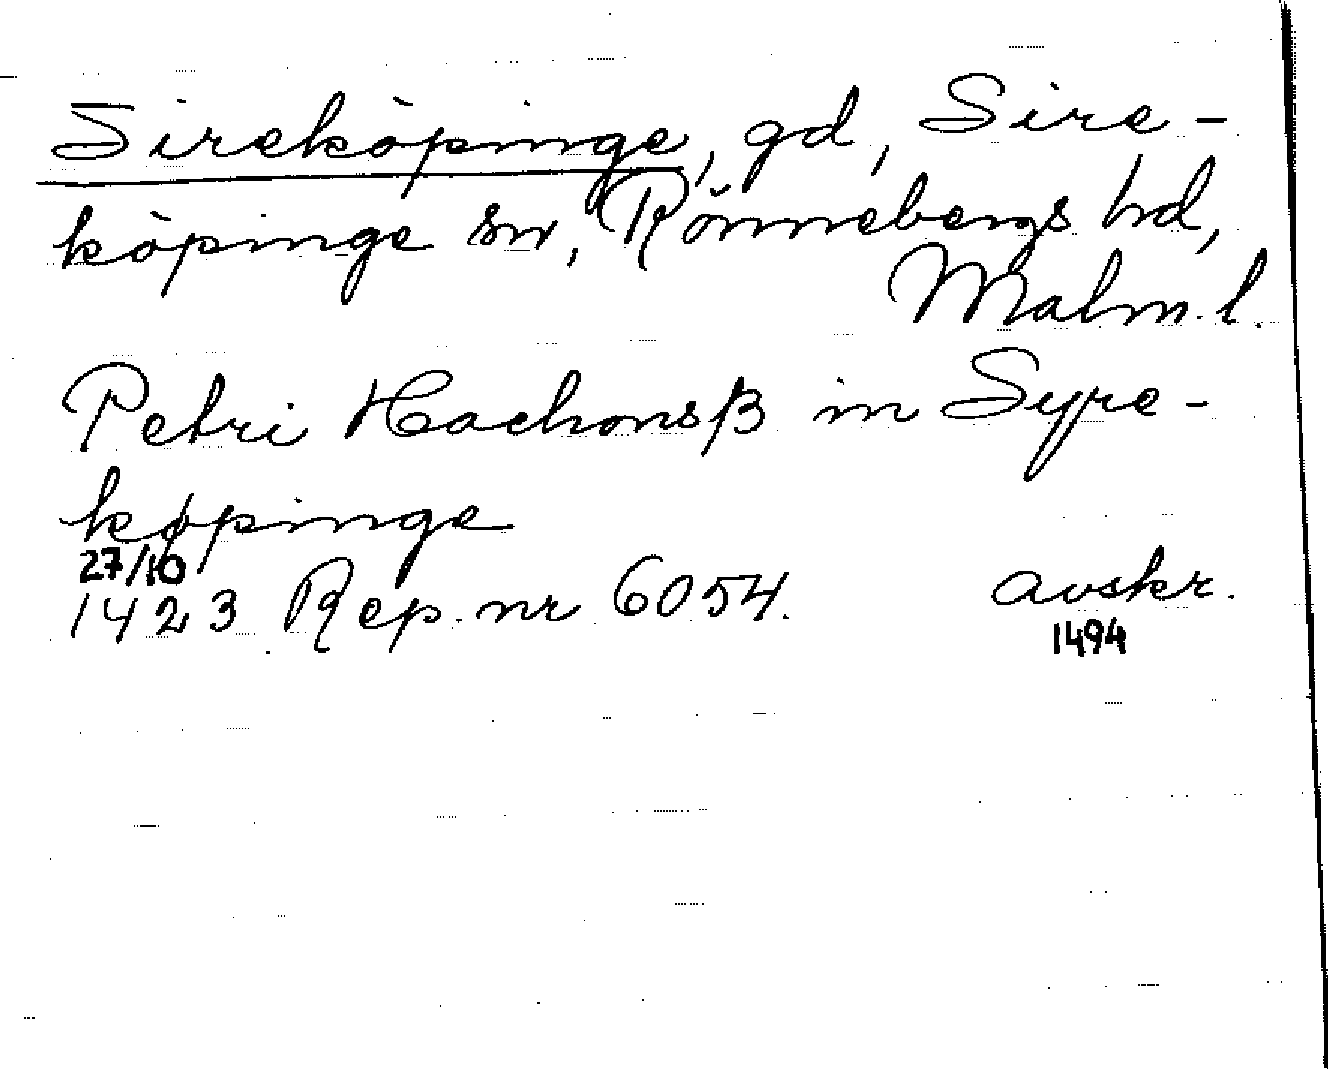 Sireköpinge, gd, Sire-
köpinge sn, Rönnebergs hd,
Malm. l.
Petri Hachonsß in Syre-
køpinge
27/10
1423 Rep. nr 6054. avskr.
1494